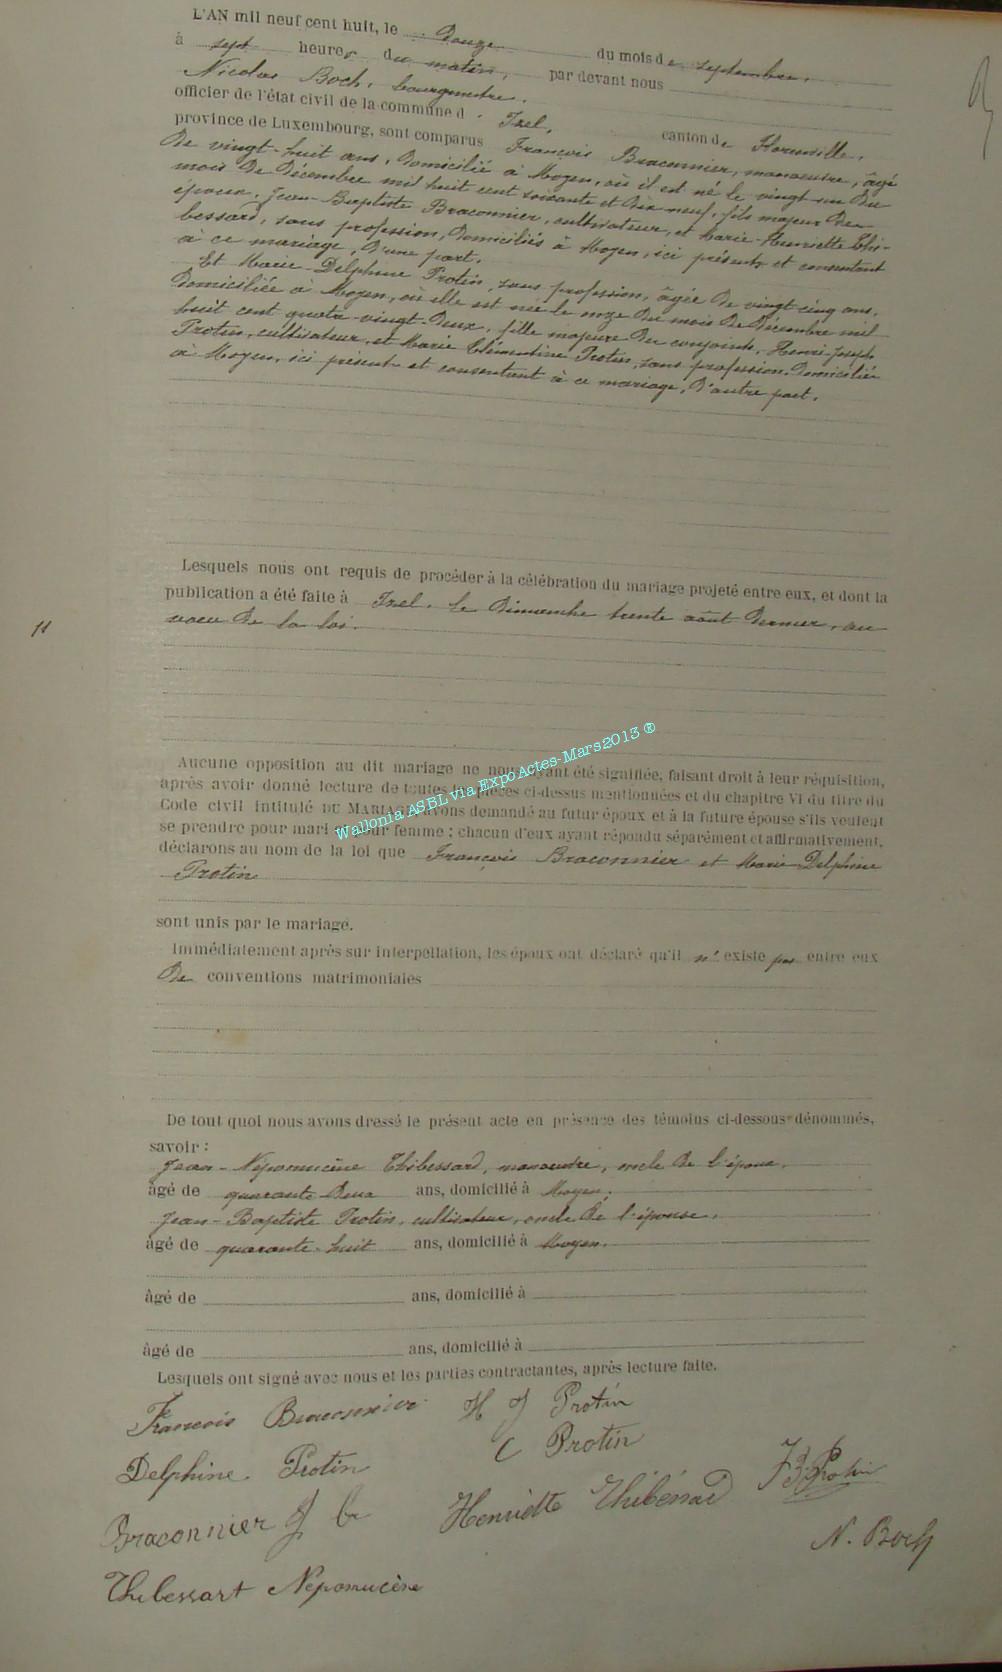 L'AN mil neuf cent huit, le Douze du mois de septembre,
à sept heures du matin, par devant nous
Nicolas Boch, bourgmestre,
officier de l'état civil de la commune d' Izel, canton de Florenville,
province de Luxembourg, sont comparus François Braconnier, manoeuvre, âgé
de vingt-huit ans, domicilié à Moyen, où il est né le vingt un du
mois de Décembre mil huit cent soixante et dix neuf, fils majeur des
époux, Jean-Baptiste Braconnier, cultivateur, et Marie-Henriette Thi-
bessard, sans profession, domiciliés à Moyen, ici présents et consentant
à ce mariage, d'une part.
Et Marie-Delphine Protin, sans profession, âgée de vingt cinq ans,
domiciliée à Moyen, où elle est née le onze du mois de Décembre mil
huit cent quatre-vingt-deux, fille majeure des conjoints, Henri-Joseph
Protin, cultivateur, et Marie Clémentine Protin, sans profession, domiciliés
à Moyen, ici présents et consentant à ce mariage, d'autre part.
Lesquels nous ont requis de procéder à la célébration du mariage projeté entre eux, et dont la
publication a été faite à Izel, le Dimanche trente août dernier, au
voeu de la loi.
11
Aucune opposition au dit mariage ne nous ayant été signifiée, faisant droit à leur réquisition,
après avoir donné lecture de toutes les pièces ci-dessus mentionnées et du chapitre VI du titre du
Code civil intitulé DU MARIAGE avons demandé au futur époux et à la future épouse s'ils veulent
se prendre pour mari et pour femme ; chacun d'eux ayant répondu séparément et affirmativement,
déclarons au nom de la loi que François Braconnier et Marie-Delphine
Protin
Wallonia ASBL via ExpoActes-Mars2013 ®
sont unis par le mariage.
Immédiatement après sur interpellation, les époux ont déclaré qu'il n' existe pas entre eux
de conventions matrimoniales
De tout quoi nous avons dressé le présent acte en présence des témoins ci-dessous dénommés,
savoir :
Jean-Népomucène Thibessard, manoeuvre, oncle de l'époux,
âgé de quarante-deux ans, domicilié à Moyen,
Jean-Baptiste Protin, cultivateur, oncle de l'épouse,
âgé de quarante-huit ans, domicilié à Moyen.
âgé de ans, domicilié à
âgé de ans, domicilié à
Lesquels ont signé avec nous et les parties contractantes, après lecture faite.
François Braconnier H J Protin
Delphine Protin C Protin
J B Protin
Braconnier J b Henriette Thibéssard
N. Boch
Thibessart Népomucène